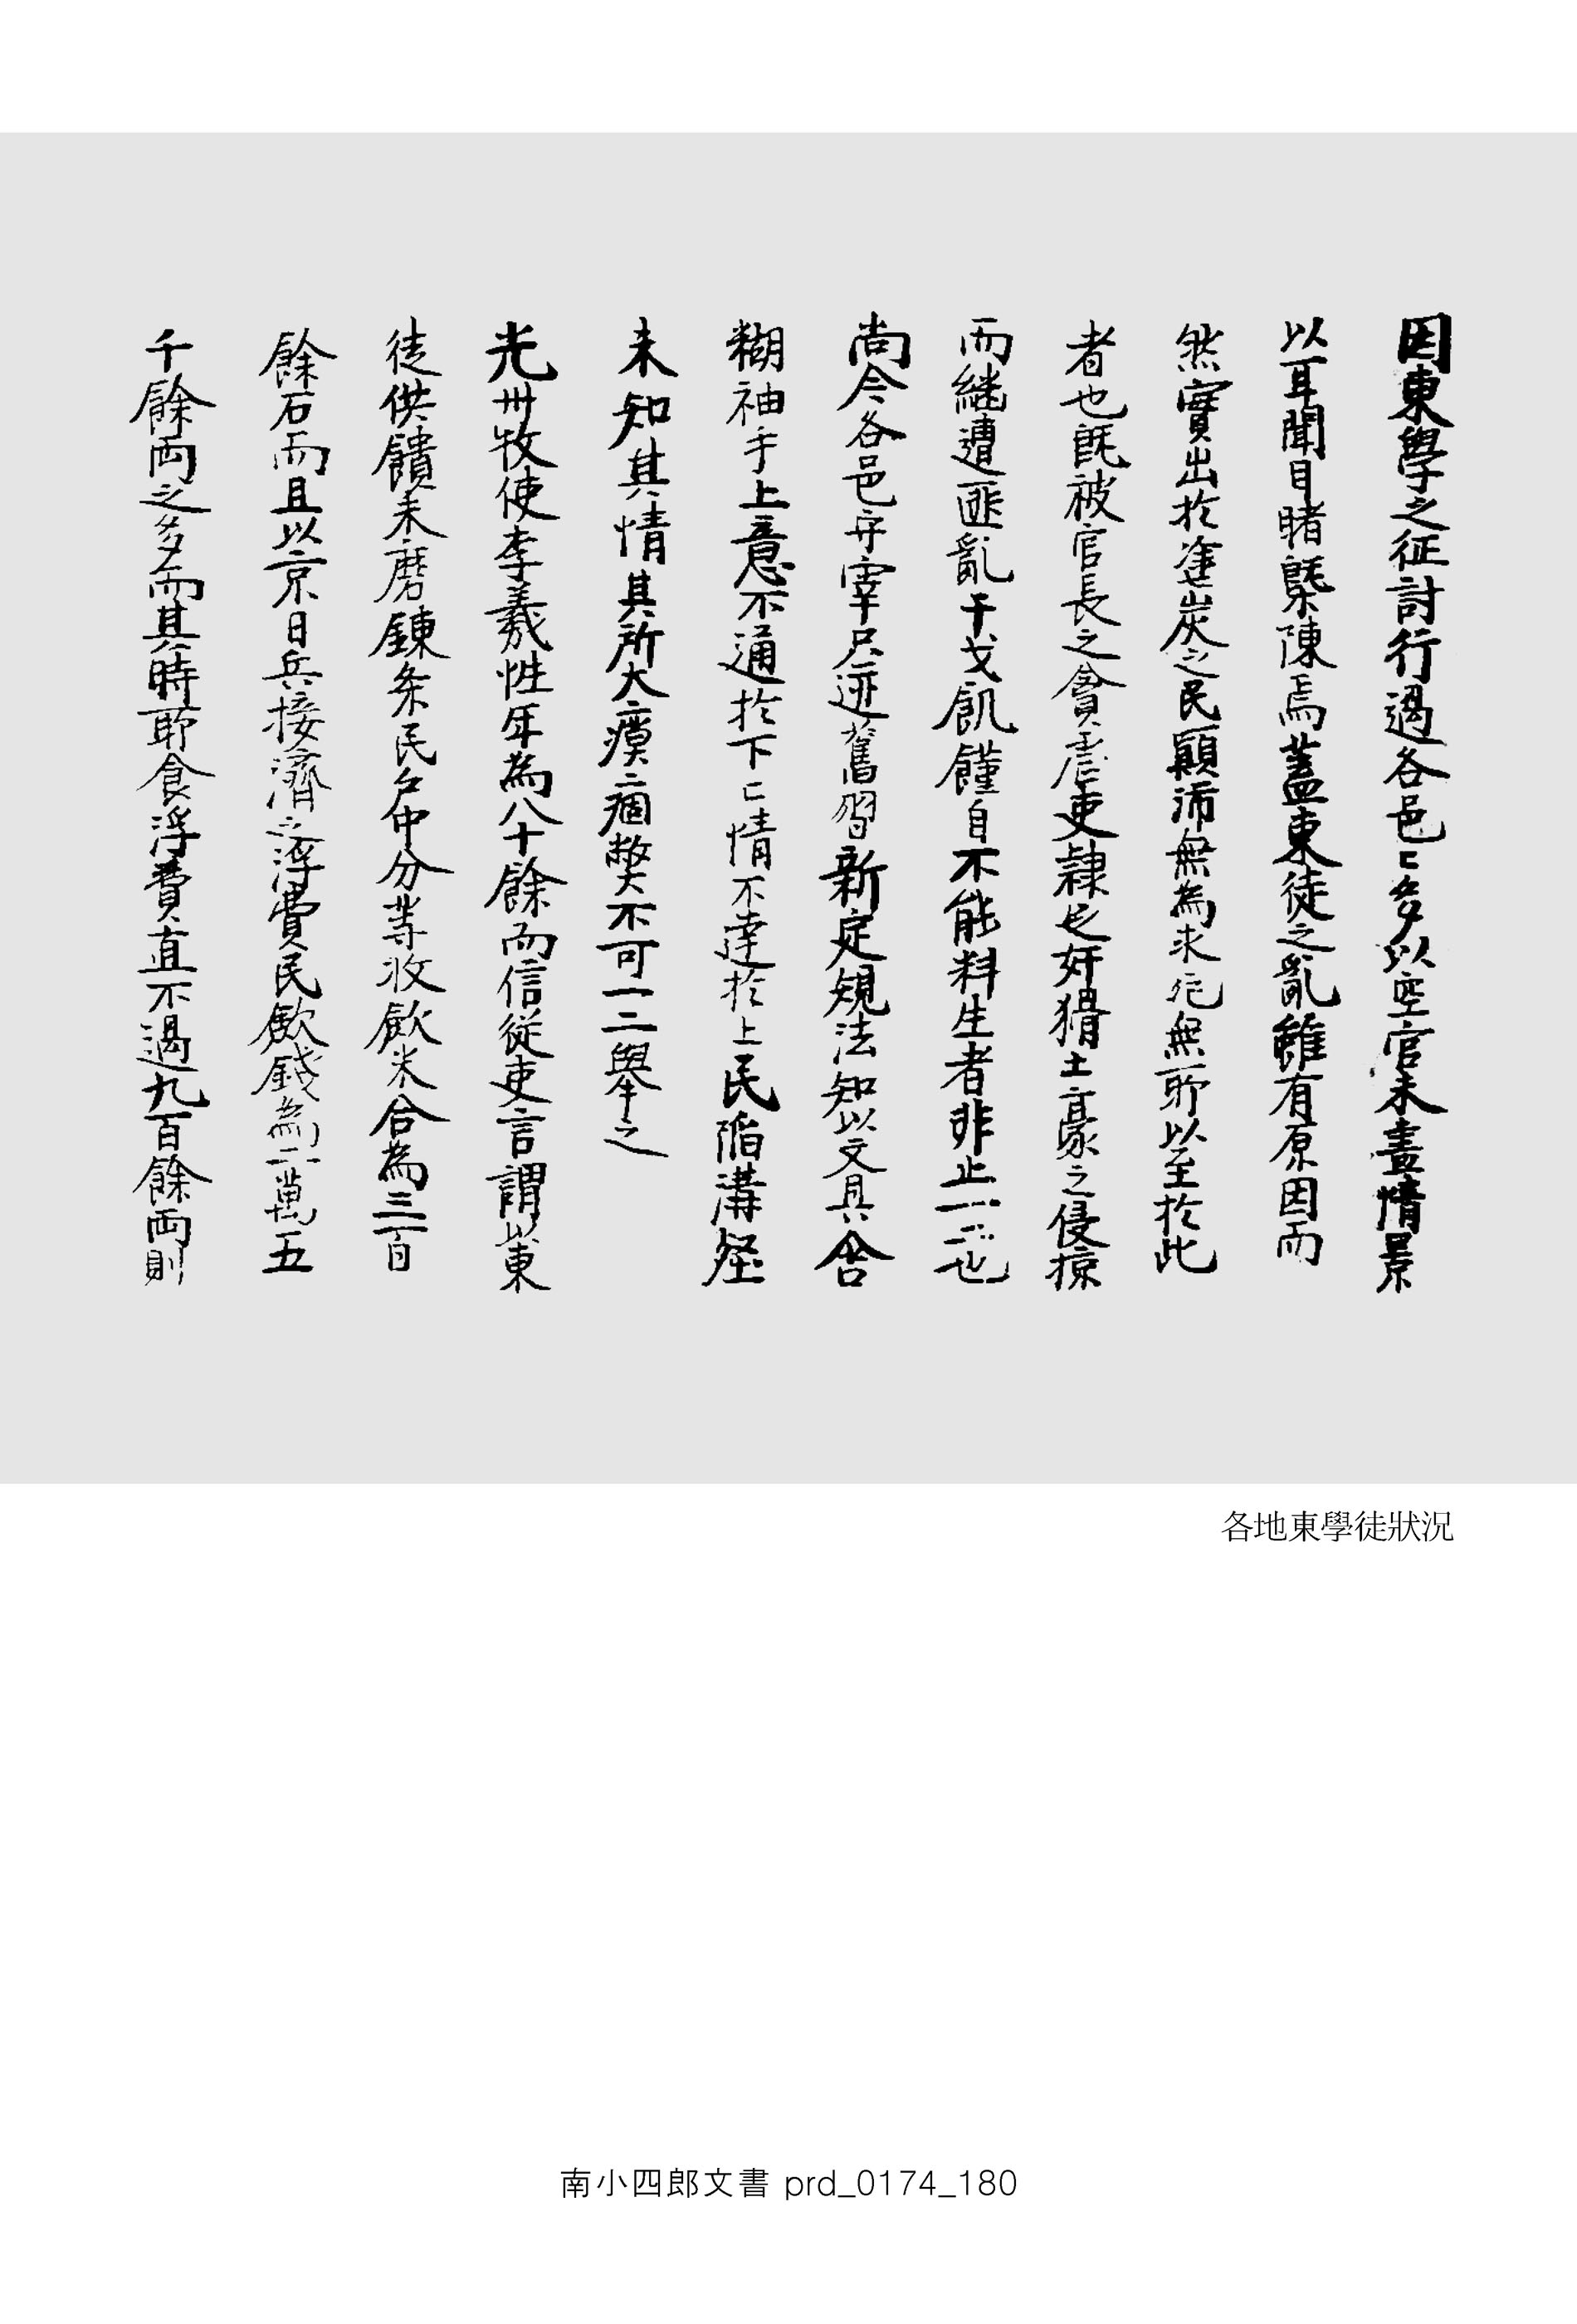 因東學之征討行過各邑〻多以空官未盡情景
以耳聞目睹槩陳焉蓋東徒之亂雖有原因而
然實出於塗炭之民顚沛無為求死無所以至於此
者也旣被官長之貪虐吏隷之奸猾土豪之侵掠
而継遭匪亂干戈飢饉自不能料生者非止一二也
尚今各邑守宰只述舊習新定規法知以文具含
糊袖手上意不通於下〻情不達於上民陷溝壑
未知其情其所大瘼痼弊不可一二擧之
光州牧使李羲性年為八十餘而信從吏言謂以東
徒供饋未磨錬条民戶中分等收斂米合為三百
餘石而且以京日兵接濟之浮費民斂錢為二萬五
千餘両之多而其時所食浮費直不過九百餘両則
各地東學徒狀況
南小四郎文書 prd_0174_180